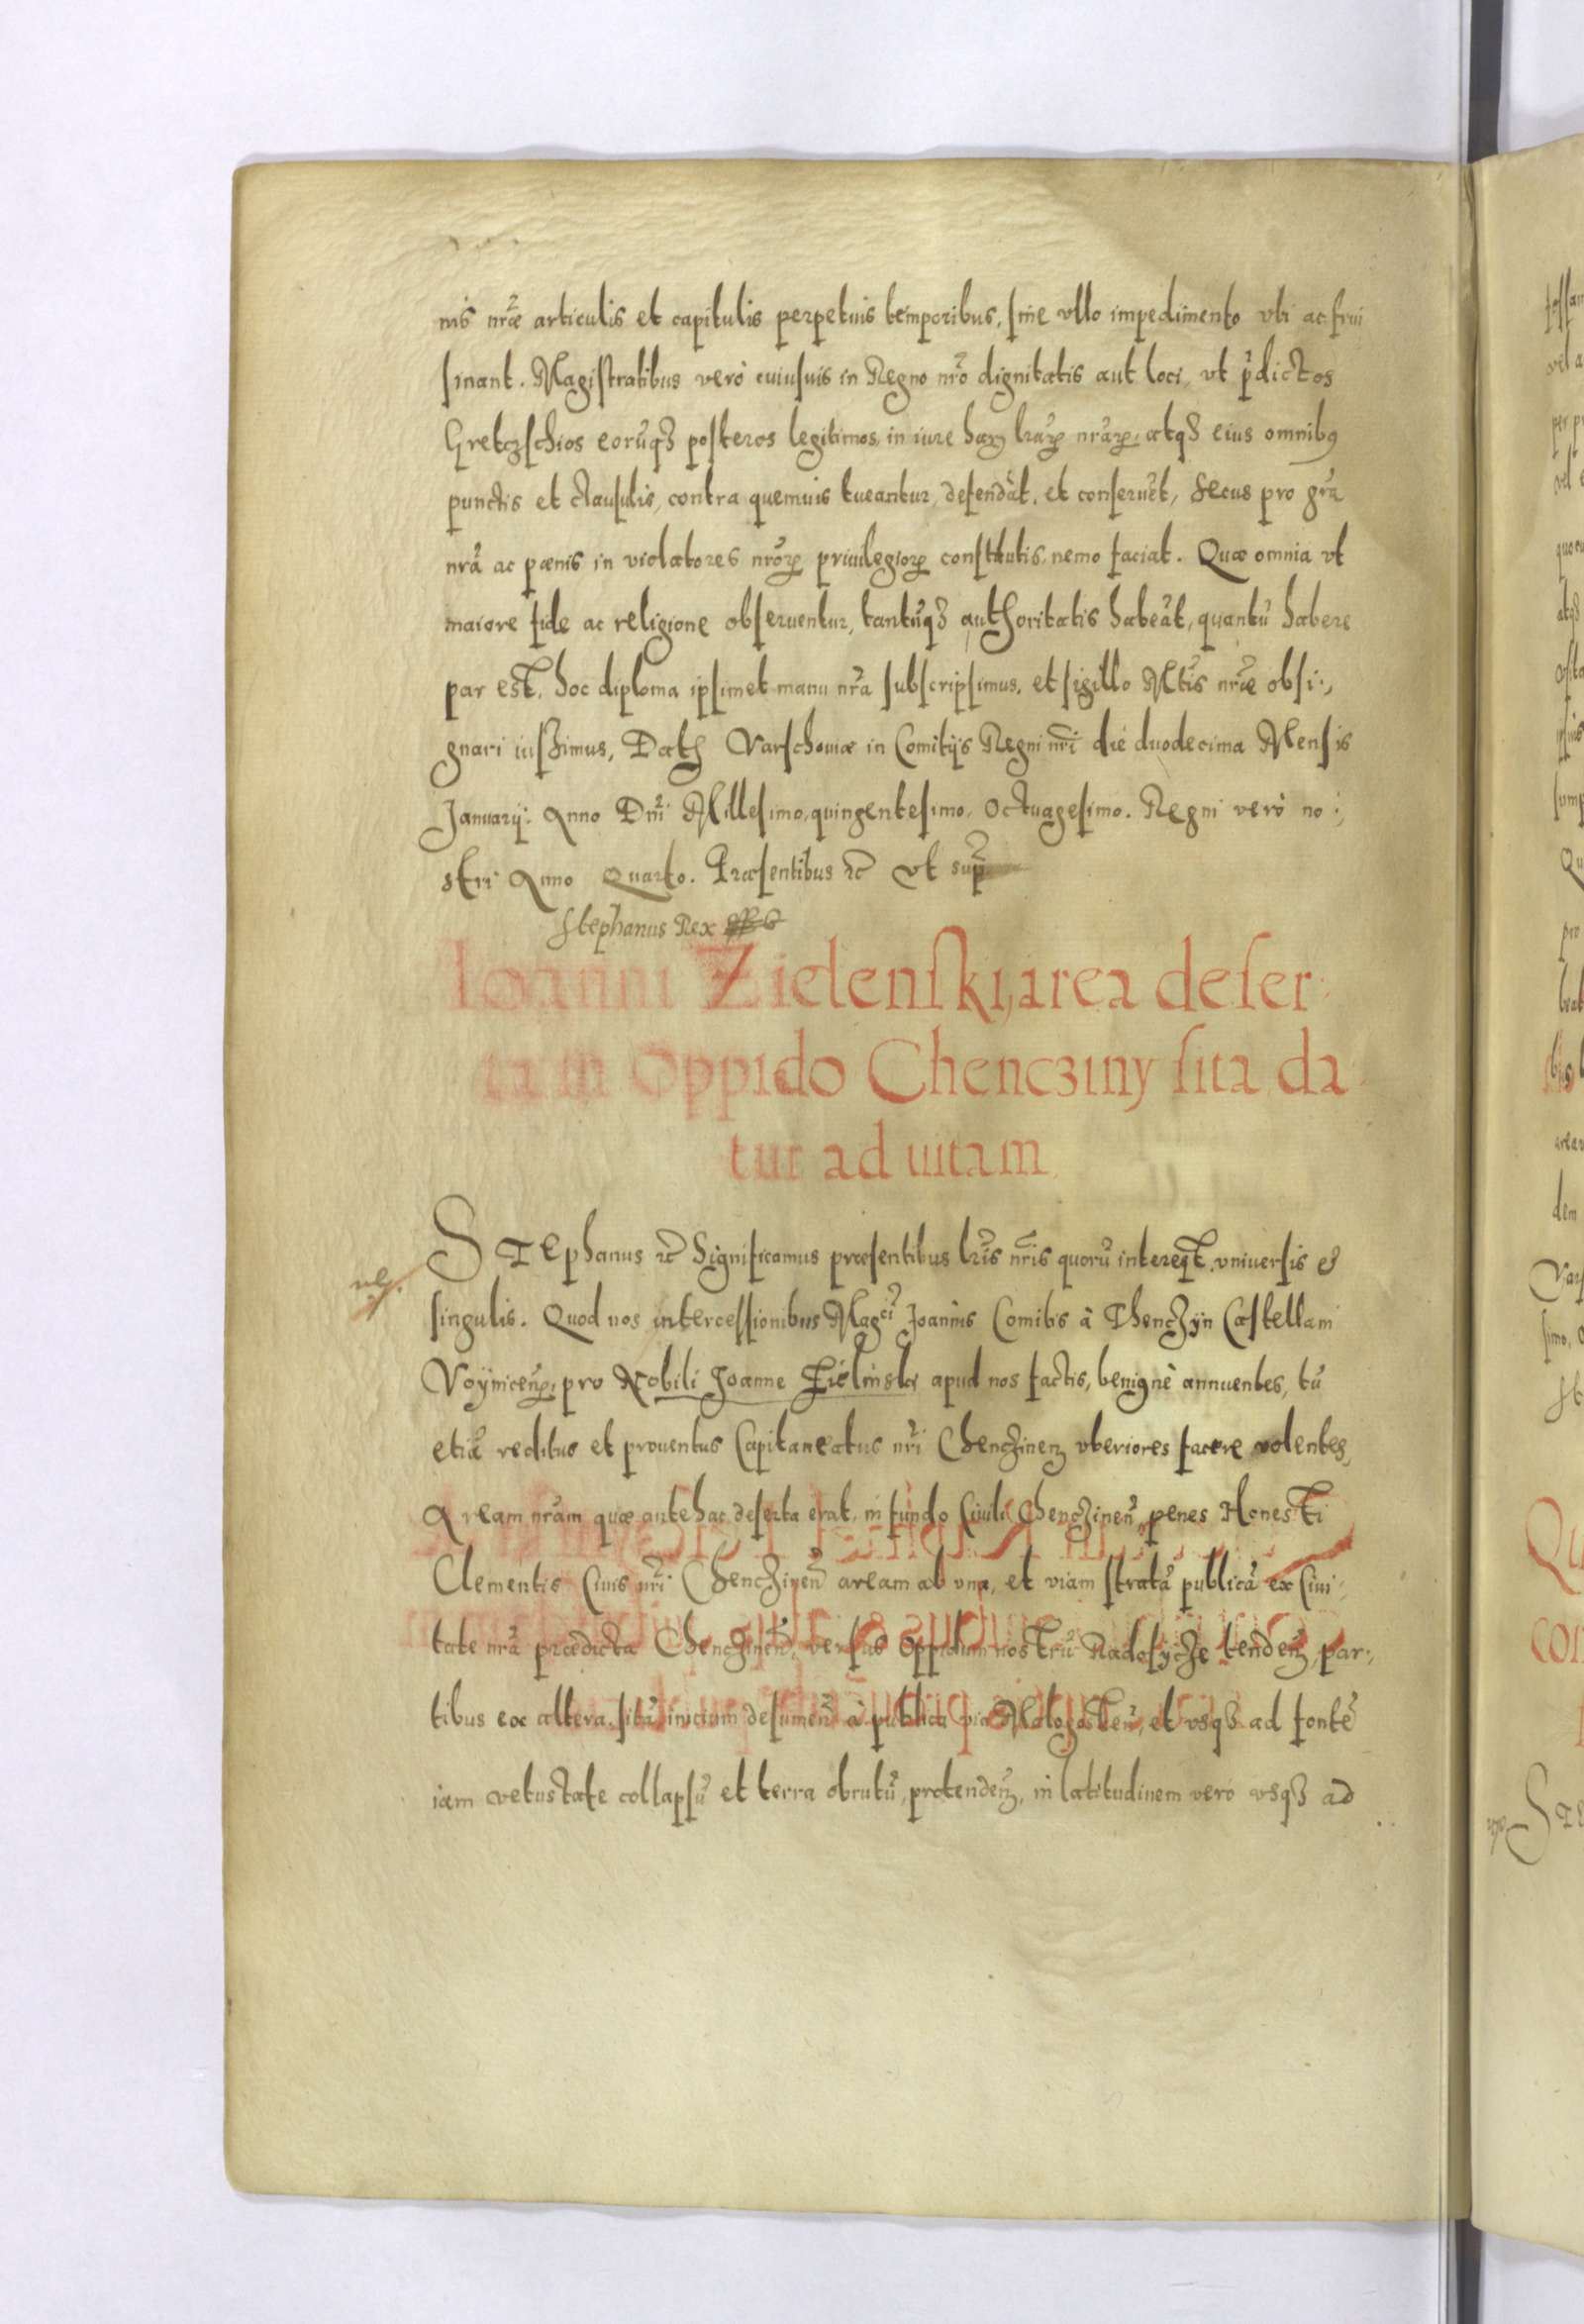 nis nr̃æ articulis et capitulis perpetuis temporibus, sine vllo impedimento vti ac frui
sinant. Magistratibus verò cuiusuis in Regno nr̃o dignitatis aut loci, vt p̃dictos
Gretczschios eorũqȝ posteros legitimos, in iure har̃ lrãrꝝ nr̃arꝝ, atqȝ eius omnibꝰ
punctis et clausulis, contra quemuis tueantur, defendãt, et conseruẽt, Secus pro gr̃a
nr̃a ac pœnis in violatores nr̃orꝝ priuilegiorꝝ constitutis, nemo faciat. Quæ omnia vt
maiore fide ac religione obseruentur, tantũqȝ authoritatis habeãt, quantũ habere
par est, hoc diploma ipsimet manu nr̃a subscripsimus, et sigillo Mt̃is nr̃æ obsi:,
gnari iussimus, Datȝ Varschouiæ in Comitijs Regni nr̃i die duodecima Mensis
Januarij: Anno Dñi Millesimo, quingentesimo, Octuagesimo. Regni verò no:,
stri Anno Quarto. Præsentibus ꝛc̃ vt sup̃
Stephanus Rex
Ioanni Zielenski, area deser
ta in oppido Chencziny sita da
tur ad uitam
STEphanus ꝛc̃ Significamus præsentibus lr̃is nr̃is quorũ interest, vniuersis &
singulis. Quod nos intercessionibus Magci Joannis Comitis à Thenczyn Castellani
Voyniceñ, pro Nobili Joanne Zielinski apud nos factis, benignè annuentes, tũ
etiã reditus et prouentus Capitaneatus nr̃i Chenczinen̄ vberiores facere volentes,
Aream nr̃am quæ antehac deserta erat, in fundo Ciuili Chenczineñ penes Honesti
Clementis Ciuis nr̃i Chenczineñ aream ab vna, et viam stratã publicã ex Ciui:
tate nr̃a prædicta Chenczineñ, versus Oppidum nostrũ Radosycze tendeñ, par:,
tibus ex altera, sitã inicium desumeñ à publica via Malogosteñ, et vsqȝ ad fontẽ
iam vetustate collapsũ et terra obrutũ, protendeñ, in latitudinem verò vsqȝ ad